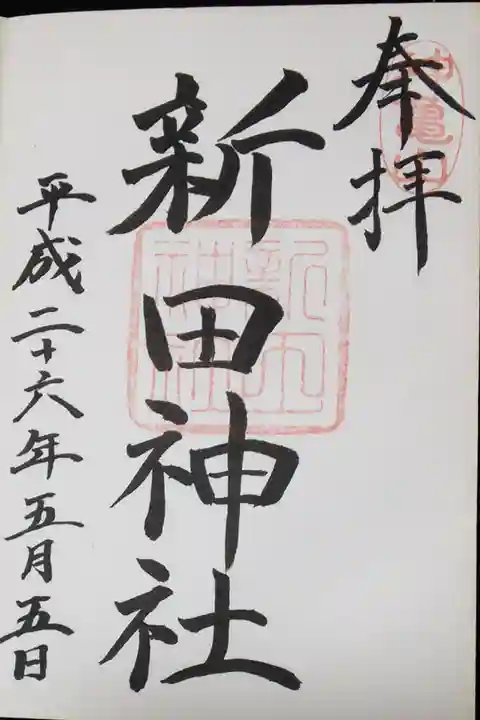 奉拝
新田神社
平成二十六年五月五日
新田
神社